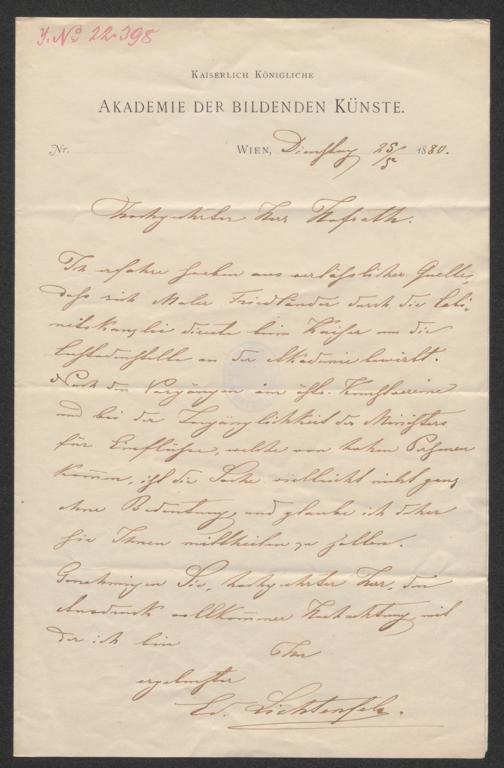 J. No 22.398
Kaiserlich Königliche
Akademie der bildenden Künste.
Nr.
Wien, Dienstag 25/5 1880.
Hochgeehrter Herr Hofrath.
Ich erfahre soeben aus verlässlicher Quelle,
daß sich Maler Friedländer durch die Cabi-
netskanzlei direkte beim Kaiser um die
an der Akademie bewirbt.
Nach den Vorgängen im östr. Kunstvereine
und bei der Zugänglichkeit des Ministers
für Einflüsse, welche von hohen Personen
kommen, ist die Sache vielleicht nicht ganz
ohne Bedeutung, und glaube ich daher
sie Ihnen mittheilen zu sollen.
Genehmigen Sie, hochgeehrter Herr, den
Ausdruck vollkommener Hochachtung mit
der ich bin
Ihr
ergebenster
Ed. Lichtenfels.